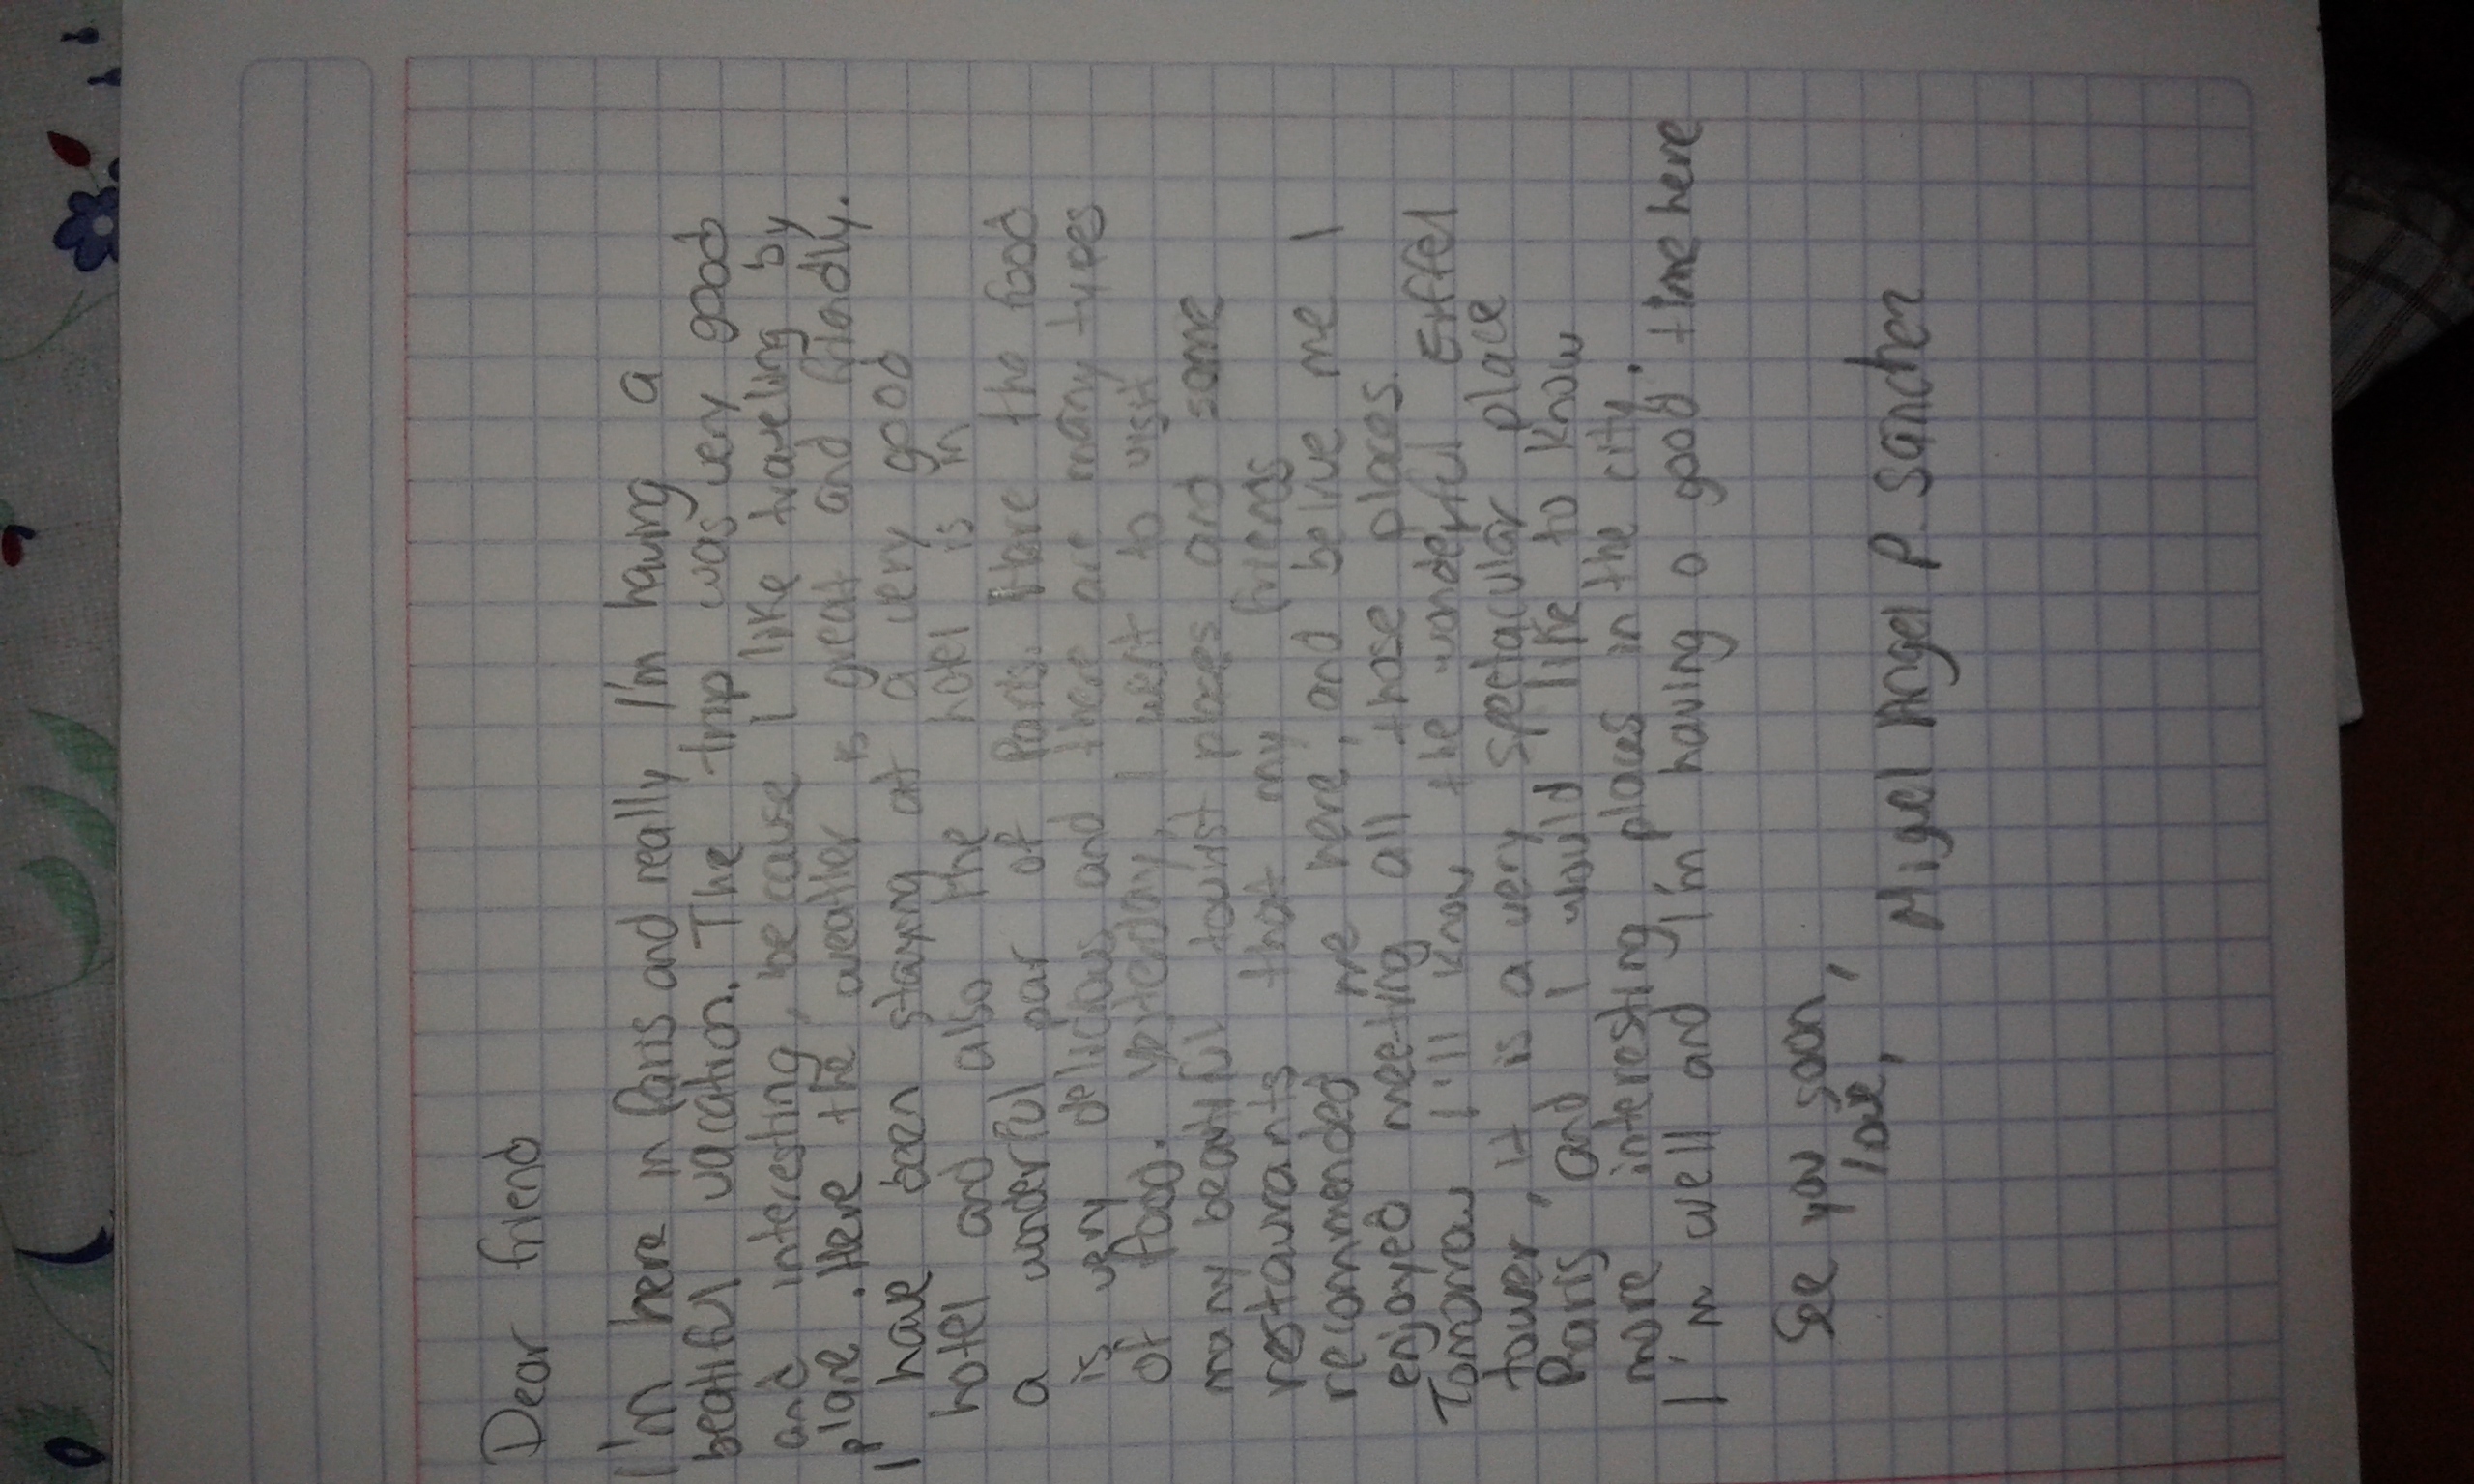 Dear friend
I'm here in Paris and really I'm having a
beatiful vacation. The trip was very good
and interesting, because I like traveling by
plane. Here the weather is great and friendly.
I have been staying at a very good
hotel and also the hotel is in
a wonderful par of Paris. Here the food
is very delicious and there are many types
of food. Yesterday, I went to visit
many beautiful tourist places and some
restaurants that my friends
recommended me here, and belive me I
enjoyed meeting all those places.
Tomorrow I'll know the wonderful Eiffel
tower, it is a very spectacular place
Paris and I would like to know
more interesting places in the city.
I'm well and I'm having a good time here
See you soon,
love,
Miguel Angel P. Sánchez